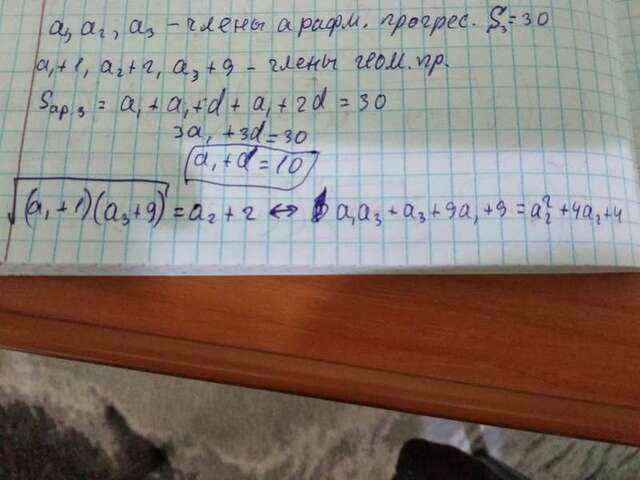 a₁ a₂, a₃ - члены арифм. прогрес. S₃=30
a₁+1, a₂+2, a₃+9 - члены геом. пр.
Sар3 = a₁ + a₁+d + a₁ + 2d = 30
3a₁ + 3d = 30
a₁ + d = 10
√(a₁+1)(a₃+9) = a₂ + 2 ⇔ a₁a₃ + a₃ + 9a₁ + 9 = a₂² + 4a₂ + 4